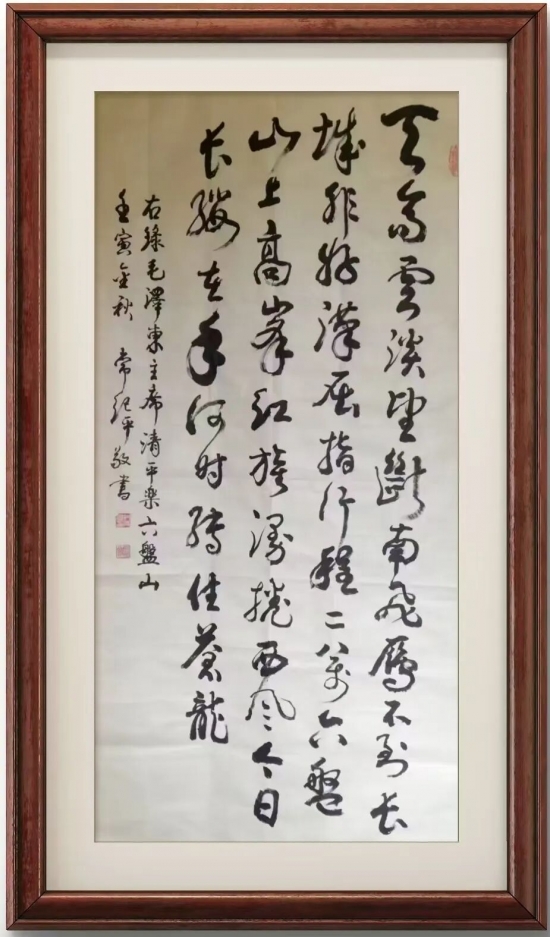 天高雲淡望斷南飛鴈不到長
城非好漢屈指行程二萬六盤
山上高峯紅旗漫捲西風今日
長纓在手何時縛住蒼龍
右錄毛澤東主席清平樂六盤山
壬寅金秋 常紀平敬書